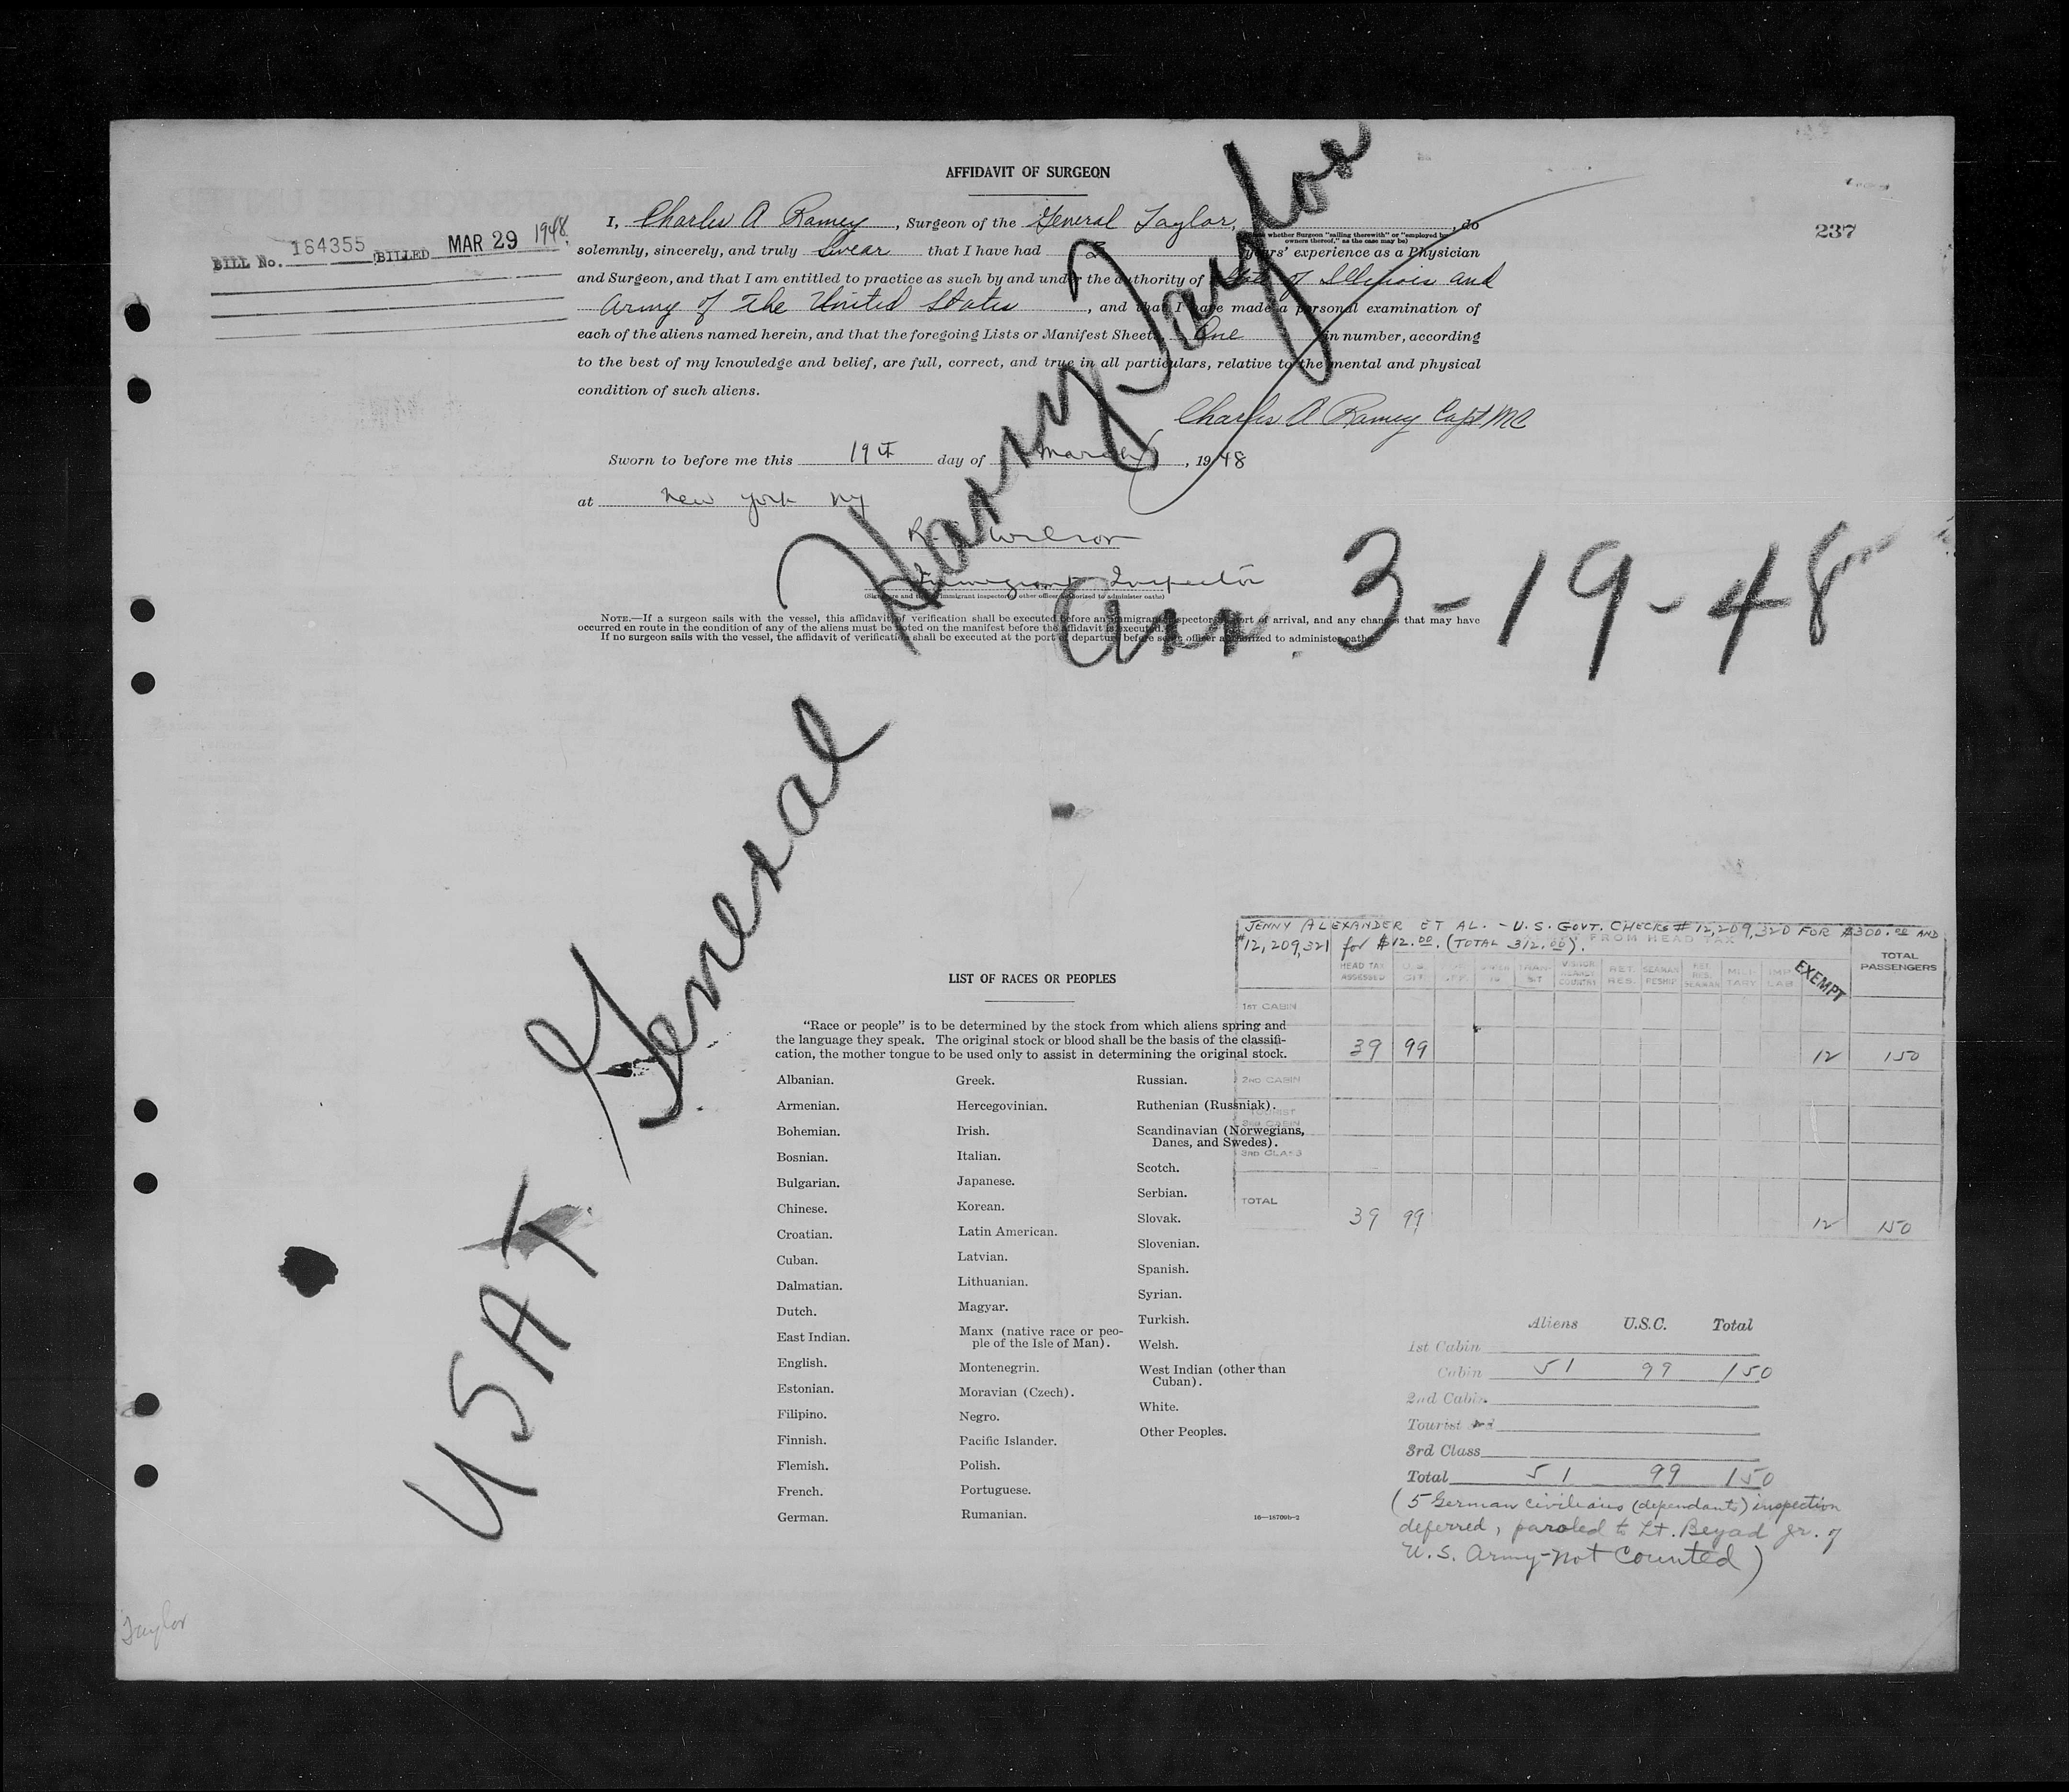 AFFIDAVIT OF SURGEON
I, Charles A Ramey, Surgeon of the General Taylor, do
whether Surgeon "sailing therewith" or "employed by
owners thereof," as the case may be)
237
BILL No. 164355 BILLED MAR 29 1948.
solemnly, sincerely, and truly Swear that I have had 2 years' experience as a Physician
and Surgeon, and that I am entitled to practice as such by and under the authority of State of Illinois and
Army of The United States, and that I have made a personal examination of
each of the aliens named herein, and that the foregoing Lists or Manifest Sheets, One in number, according
to the best of my knowledge and belief, are full, correct, and true in all particulars, relative to the mental and physical
condition of such aliens.
Charles A Ramey Capt MC
Sworn to before me this 19th day of March, 1948
at New York NY
R. Wilson
Immigrant Inspector
(Signature and title of immigrant inspector or other officer authorized to administer oaths)
NOTE.—If a surgeon sails with the vessel, this affidavit of verification shall be executed before an immigrant inspector at port of arrival, and any changes that may have
occurred en route in the condition of any of the aliens must be noted on the manifest before the affidavit is executed.
If no surgeon sails with the vessel, the affidavit of verification shall be executed at the port of departure before some officer authorized to administer oaths.
USAT General Harry Taylor
Arr. 3-19-48
JENNY ALEXANDER ET AL. - U.S. GOVT. CHECKS # 12,209,320 FOR $300.00 AND
#12,209,321 for $12.00. (TOTAL 312.00).
FROM HEAD TAX
HEAD TAX ASSESSED U.S. CIT. TRANSIT VISITOR COUNTRY RET. RES. SEAMAN RESHIP RET. RES. SEAMAN MILITARY IMP LAB EXEMPT TOTAL PASSENGERS
1ST CABIN
39 99 12 150
2ND CABIN
TOURIST
3RD CABIN
3RD CLASS
TOTAL
39 99 12 150
LIST OF RACES OR PEOPLES
"Race or people" is to be determined by the stock from which aliens spring and
the language they speak. The original stock or blood shall be the basis of the classifi-
cation, the mother tongue to be used only to assist in determining the original stock.
Albanian.
Armenian.
Bohemian.
Bosnian.
Bulgarian.
Chinese.
Croatian.
Cuban.
Dalmatian.
Dutch.
East Indian.
English.
Estonian.
Filipino.
Finnish.
Flemish.
French.
German.
Greek.
Hercegovinian.
Irish.
Italian.
Japanese.
Korean.
Latin American.
Latvian.
Lithuanian.
Magyar.
Manx (native race or peo-
ple of the Isle of Man).
Montenegrin.
Moravian (Czech).
Negro.
Pacific Islander.
Polish.
Portuguese.
Rumanian.
Russian.
Ruthenian (Russniak).
Scandinavian (Norwegians,
Danes, and Swedes).
Scotch.
Serbian.
Slovak.
Slovenian.
Spanish.
Syrian.
Turkish.
Welsh.
West Indian (other than
Cuban).
White.
Other Peoples.
16—18709b-2
Aliens U.S.C. Total
1st Cabin
Cabin 51 99 150
2nd Cabin
Tourist 3rd
3rd Class
Total 51 99 150
(5 German civilians (dependants) inspection
deferred, paroled to Lt. Beyad Jr. of
U.S. Army-not counted)
Taylor